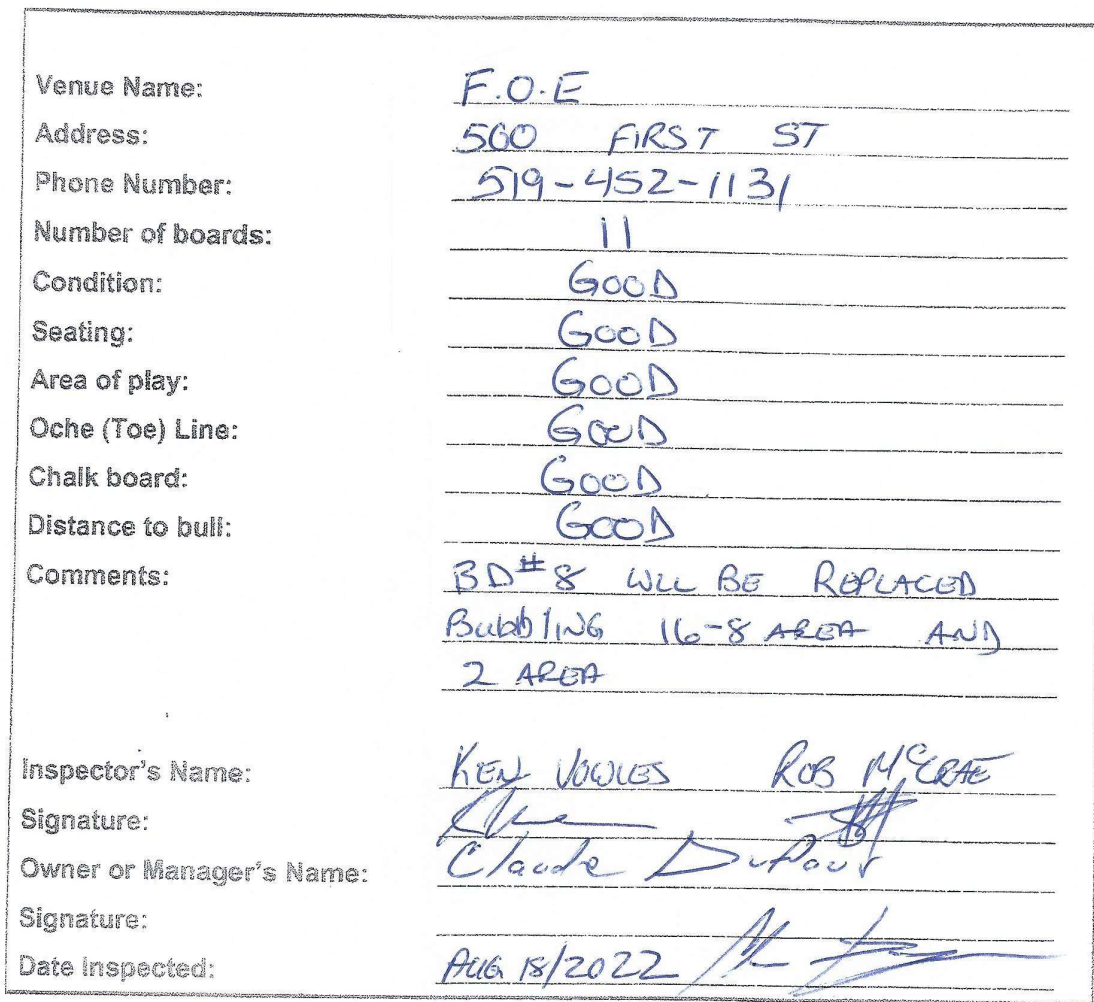 Venue Name: F.O.E
Address: 500 FIRST ST
Phone Number: 519-452-1131
Number of boards: 11
Condition: GOOD
Seating: GOOD
Area of play: GOOD
Oche (Toe) Line: GOOD
Chalk board: GOOD
Distance to bull: GOOD
Comments: BD#8 WLL BE REPLACED
BubblING 16-8 AREA AND
2 AREA
Inspector's Name: KEN VOWLES ROB McCRAE
Signature:
Owner or Manager's Name: Claude
Signature:
Date Inspected: AUG 18/2022